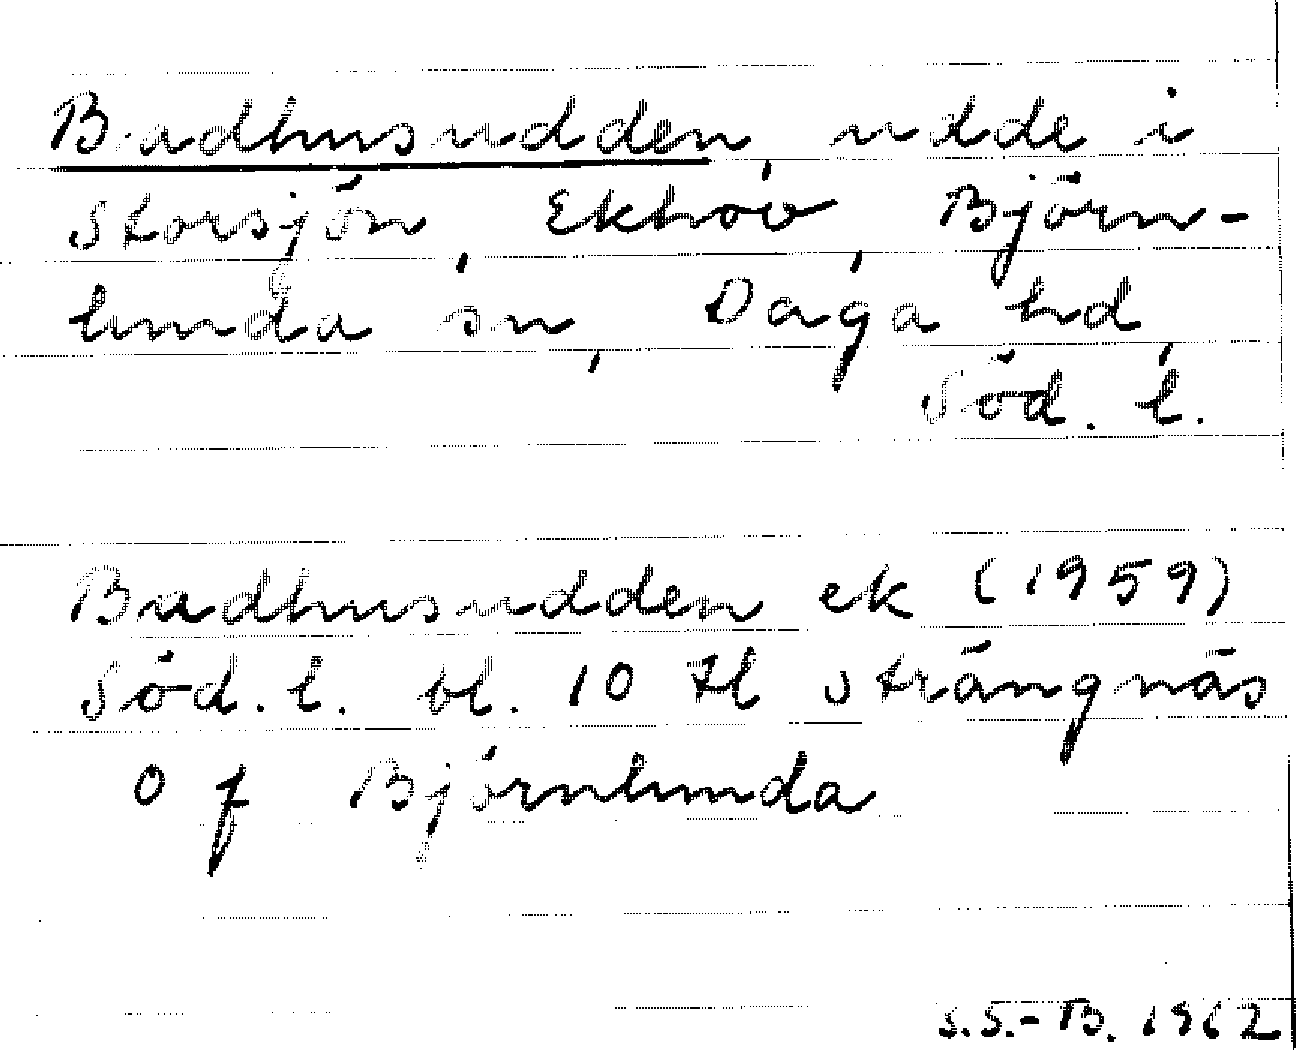 Badhusudden, udde i
Storsjön, Ekhov, Björn-
lunda sn, Daga hd,
Söd. l.
Badhusudden ek (1959)
Söd. l. bl. 10 tl Strängnäs
O f Björnlunda
S.S.-B. 1962